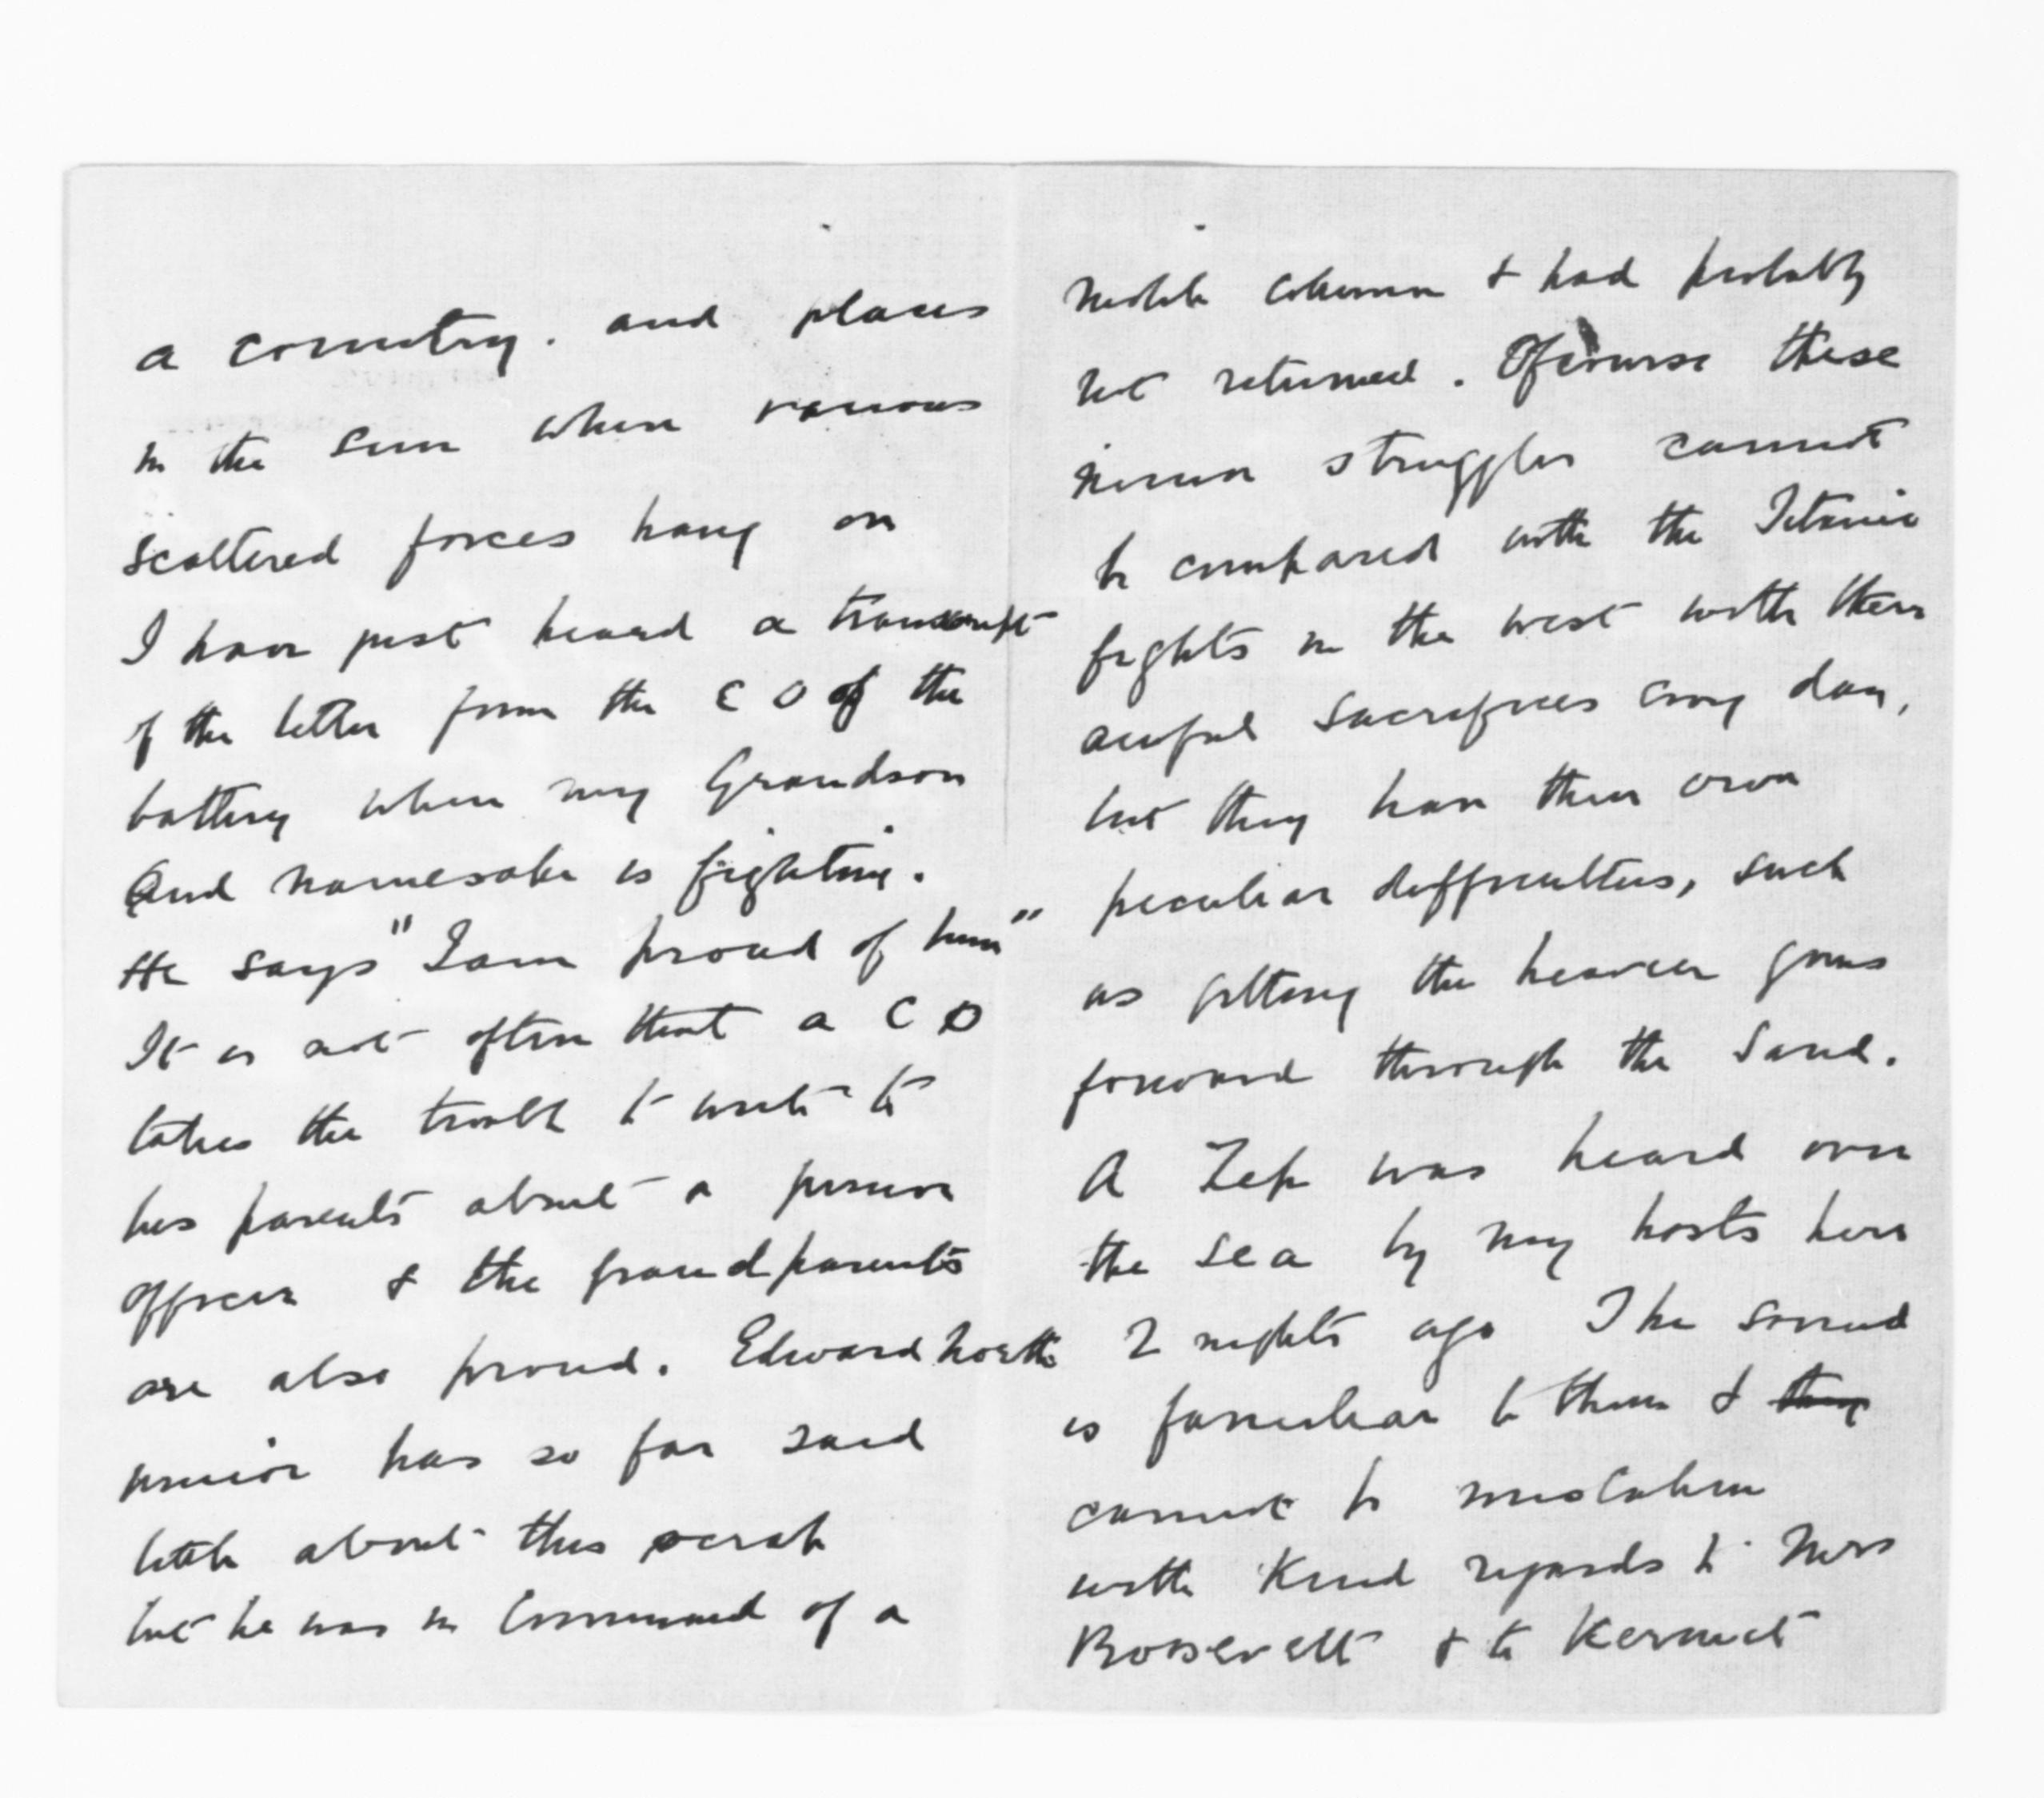 a country. and places
in the sun where various
scattered forces hang on
I have just heard a transcript
of the letter from the C O of the
battery where my Grandson
and namesake is fighting.
He says "I am proud of him"
It is not often that a C O
takes the trouble to write to
his parents about a junior
officer & the grandparents
are also proud. Edward North
junior has so far said
little about this scrap
but he was in Command of a
mobile column & had probably
not returned. Of course these
minor struggles cannot
be compared with the Titanic
fights in the west with their
awful sacrifices every day,
but they have their own
peculiar difficulties, such
as getting the heavier guns
forward through the sand.
A Zep was heard over
the sea by my hosts here
2 nights ago The sound
is familiar to them & they
cannot be mistaken
with Kind regards to Mrs
Roosevelt & to Kermit